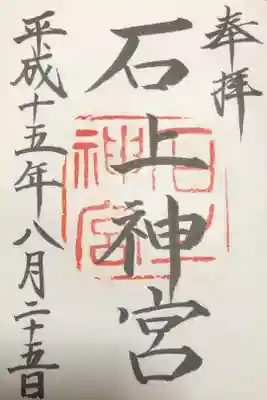 奉拝
石上神宮
石上神宮
平成十五年八月二十五日